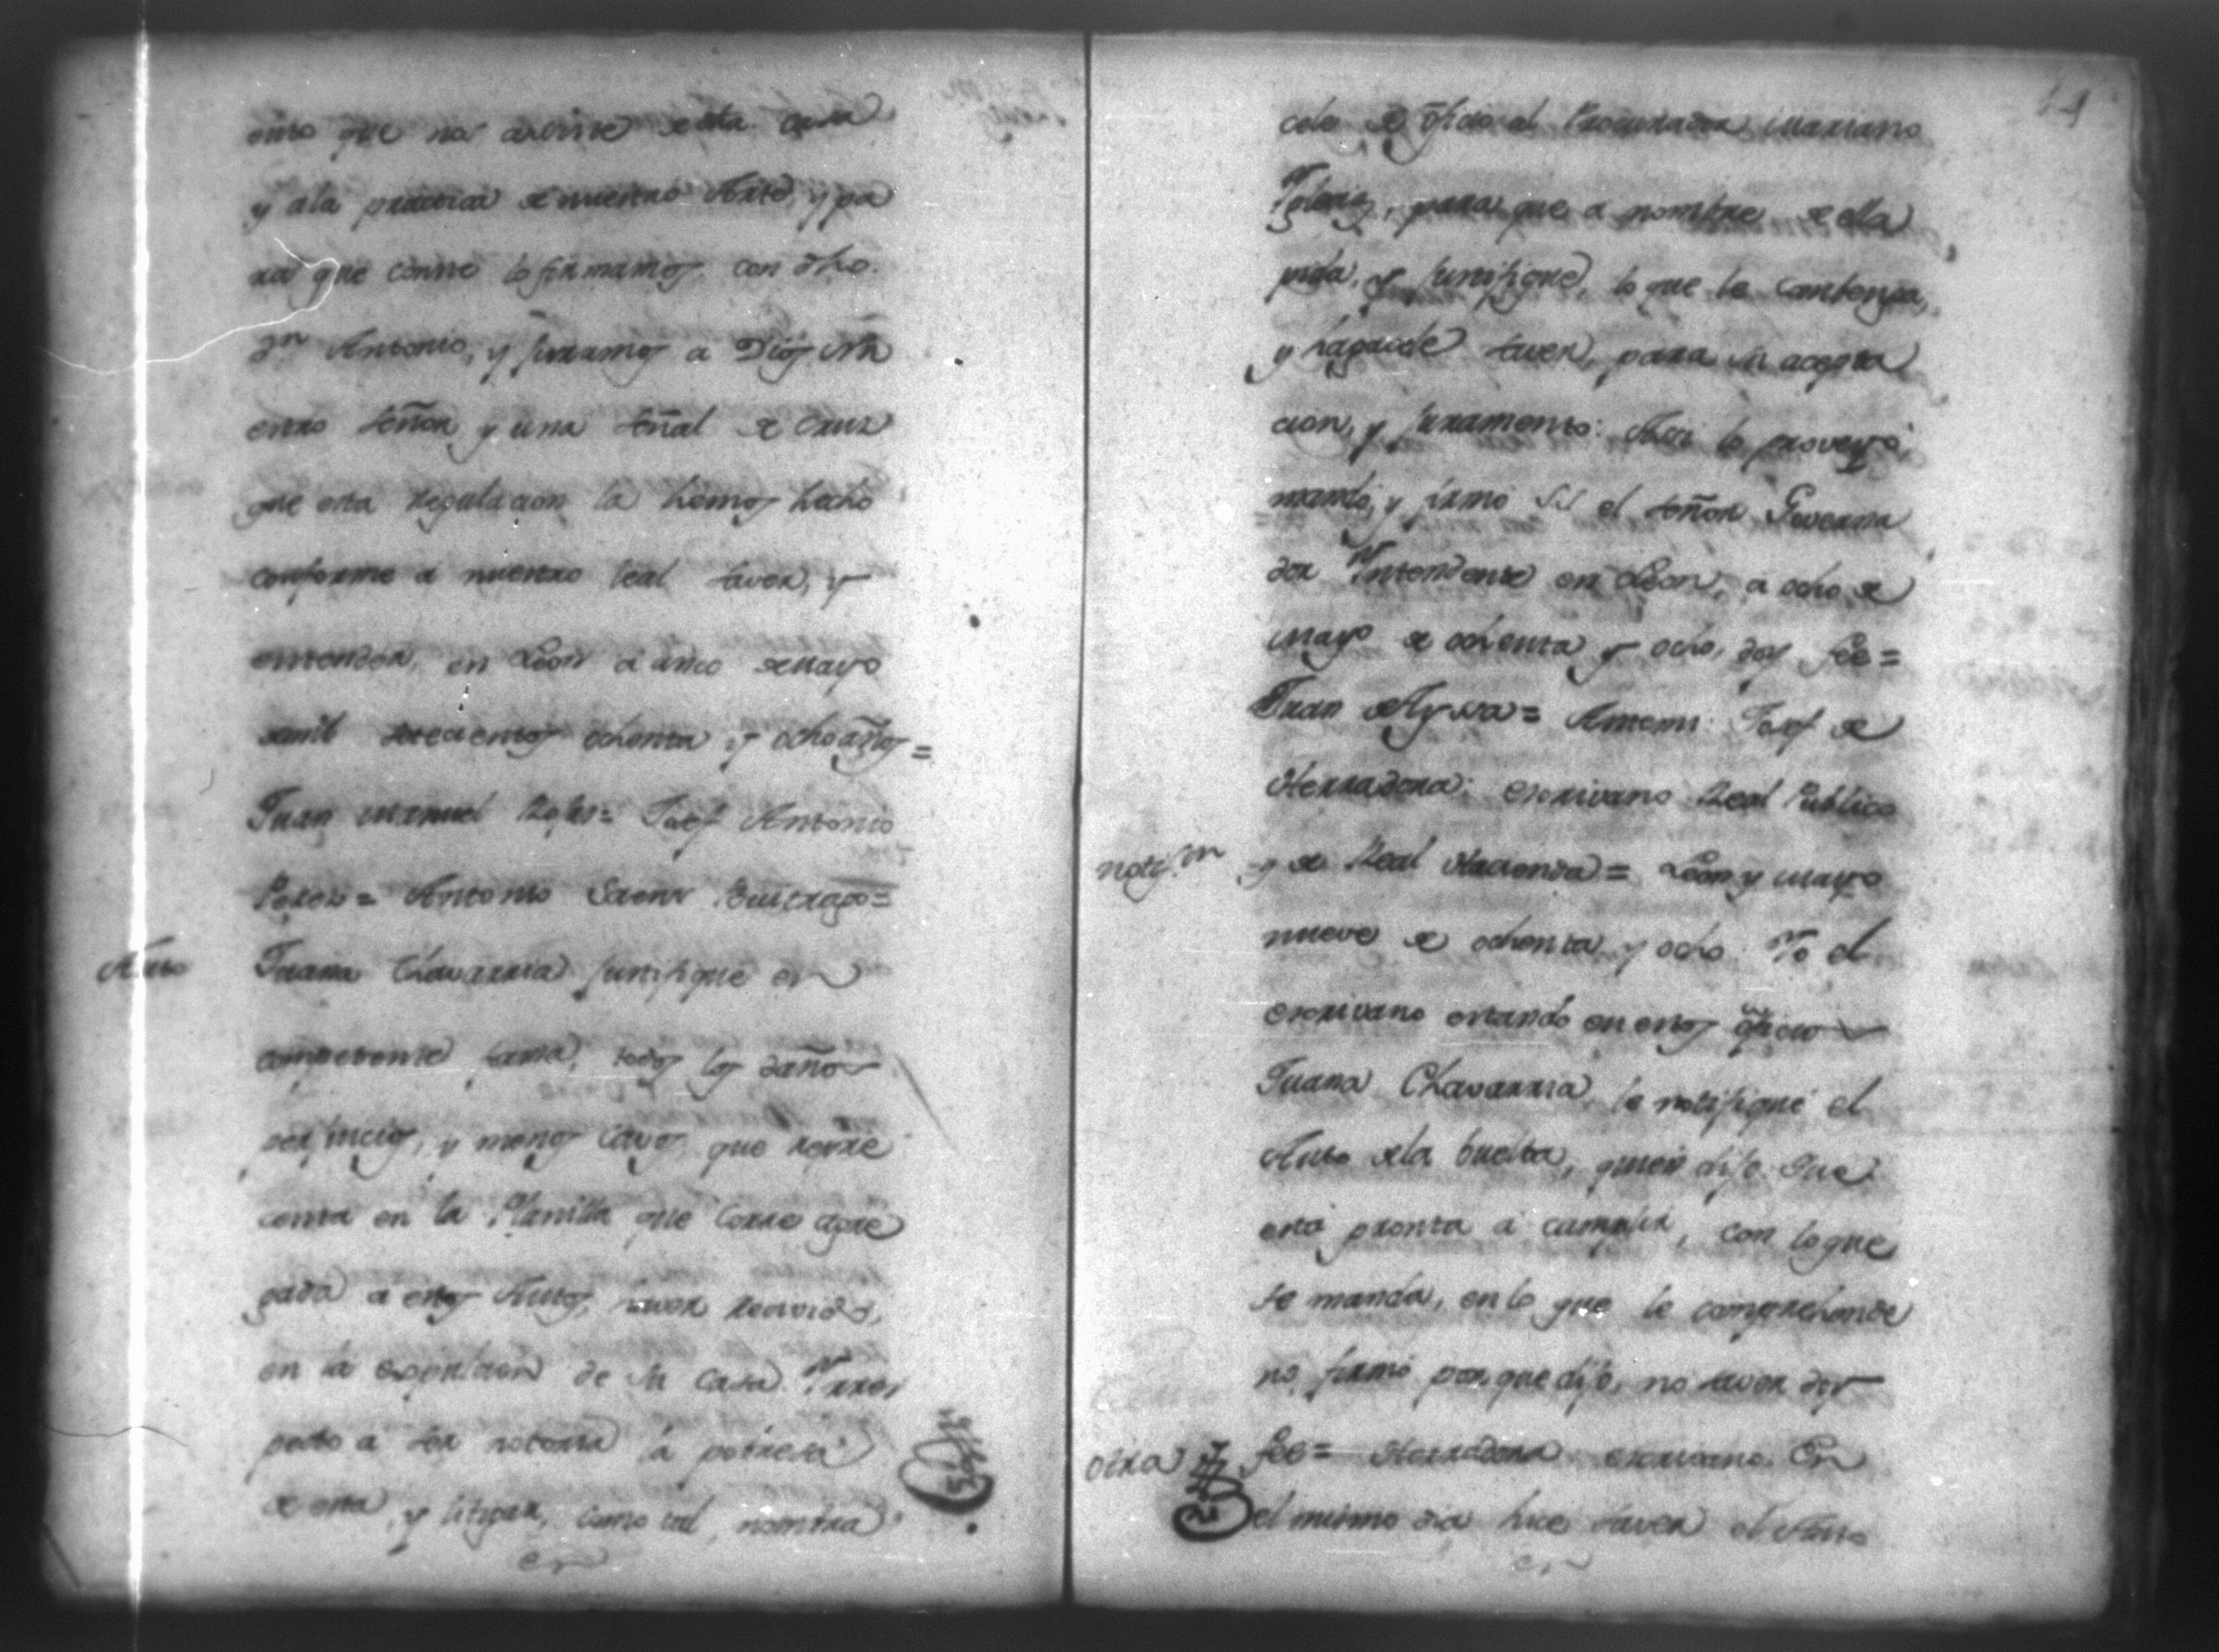 que no
y ala practica de nuestro Arte, y pa
ra que conste lo firmamos con dho.
Dn Antonio, y juramos a Dios nũ
estro señor y una señal de Cruz
que esta regulacion la hemos hecho
conforme a nuestro leal saver, y
entender, en Leon a cinco de mayo
de mil setecientos ochenta y ocho años =
Juan Manuel = Josef Antonio
Perez = Antonio Saenz Buitrago =
Auto
Juana Chavarria justifique en
competente forma, todos los daños
perjuicios, y menos cavos que repre
centa en la Planilla que corre agre
gada a estos Autos, haver recivido,
en la de su casa. Y rres
pecto a ser notoria la pobresa
de esta, y litigar, como tal, nombra
en
14
cele de oficio al Procurador Mariano
para que a nombre de ella
pida, y justifique, lo que le contenga,
y hagacele saver, para su acepta
cion, y juramento: Assi lo proveyó,
mandó, y firmó el señor Governa
dor Yntendente en Leon, a ocho de
mayo de ochenta y ocho, doy fee =
Juan de Ayssa = Antemi: Josef de
Herradora: escrivano Real Publico
notif.on
y de Real Hacienda = Leon y mayo
nueve de ochenta y ocho. Yo el
escrivano estando en estos oficios
Juana Chavarria le notifiqué el
Auto de la buelta, quien dijo: Que
está pronta a cumplir, con lo que
se manda, en lo que le comprehende
no firmó porque dijo, no saver doy
otra
fee = Herradora escrivano. En
el mismo dia hice saver el Auto
en